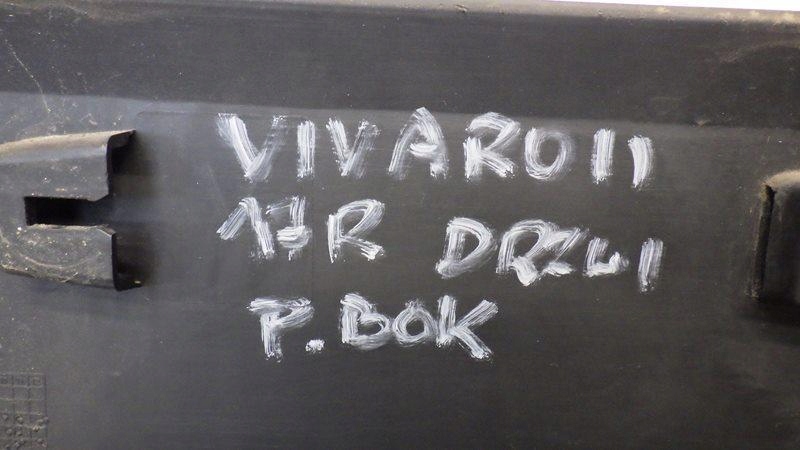 VIVARO II
17R DRZWI
P. BOK